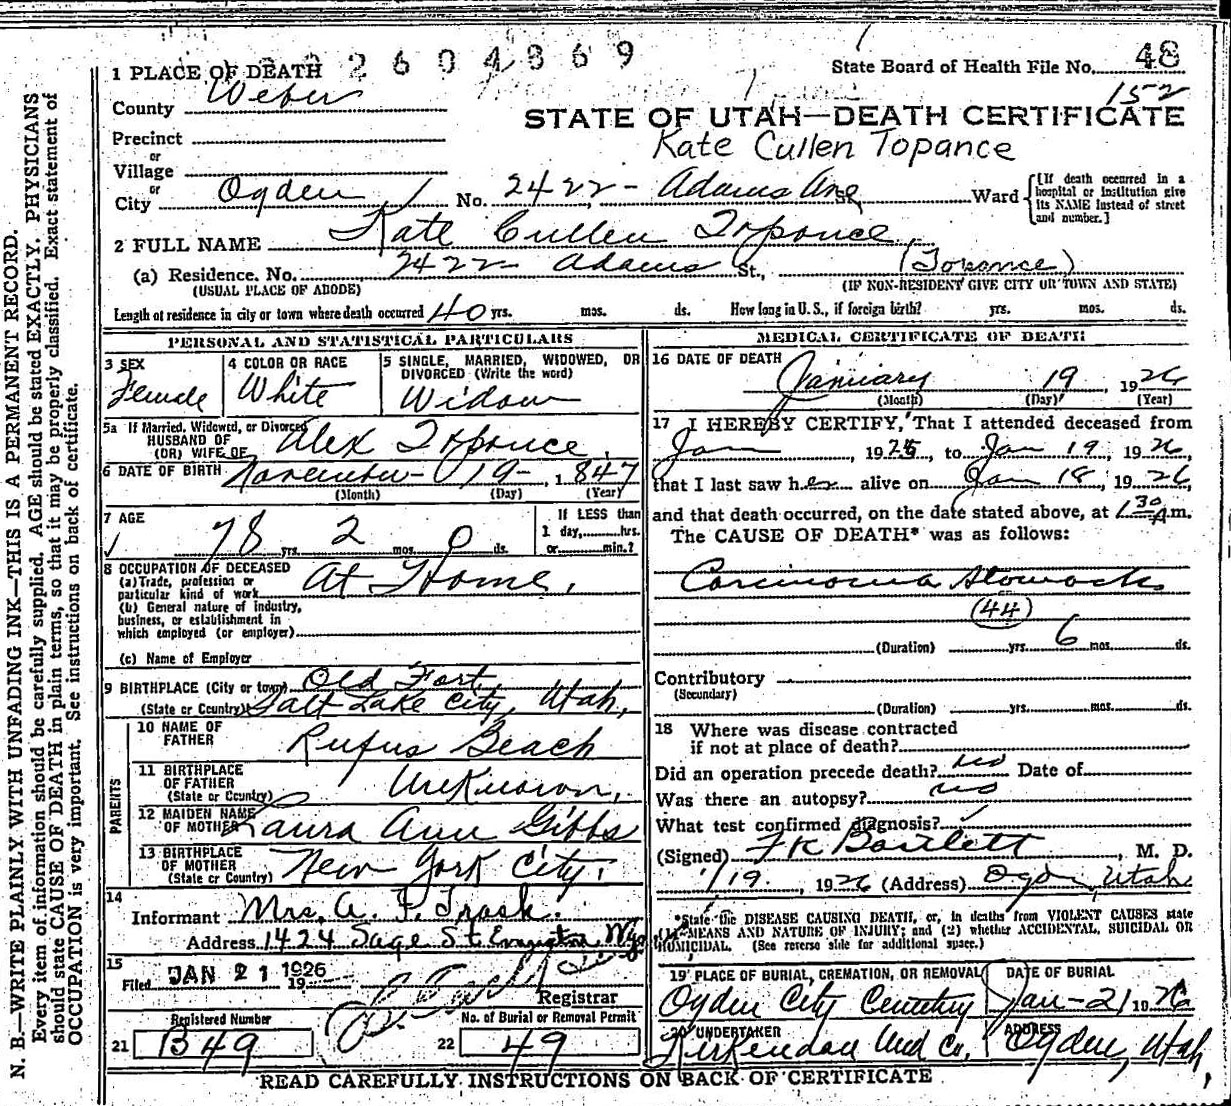 2604869
1 PLACE OF DEATH
State Board of Health File No. 48
152
County Weber
STATE OF UTAH—DEATH CERTIFICATE
Precinct
Kate Cullen Topance
or
Village
or
City Ogden No. 2422 - Adams Ave St. Ward {[If death occurred in a hospital or institution give its NAME instead of street and number.]
2 FULL NAME Kate Cullen Toponce
(a) Residence. No. 2422 Adams St., (Toponce)
(USUAL PLACE OF ABODE) (IF NON-RESIDENT GIVE CITY OR TOWN AND STATE)
Length of residence in city or town where death occurred 40 yrs. mos. ds. How long in U. S., if foreign birth? yrs. mos. ds.
PERSONAL AND STATISTICAL PARTICULARS
3 SEX Female
4 COLOR OR RACE White
5 SINGLE, MARRIED, WIDOWED, OR DIVORCED (Write the word) Widow
5a If Married, Widowed, or Divorced
HUSBAND OF
(OR) WIFE OF Alex Toponce
6 DATE OF BIRTH November 19, 1847
(Month) (Day) (Year)
7 AGE 78 yrs. 2 mos. 0 ds.
If LESS than
1 day,......hrs.
or......min.?
8 OCCUPATION OF DECEASED
(a) Trade, profession or
particular kind of work At Home,
(b) General nature of industry,
business, or establishment in
which employed (or employer)
(c) Name of Employer
9 BIRTHPLACE (City or town) Old Fort
(State or Country) Salt Lake City, Utah,
PARENTS
10 NAME OF FATHER Rufus Beach
11 BIRTHPLACE OF FATHER (State or Country) Unknown,
12 MAIDEN NAME OF MOTHER Laura Ann Gibbs
13 BIRTHPLACE OF MOTHER (State or Country) New York City,
14
Informant Mrs. A. P. Trask
Address 1424 Sage St. Evanston Wyo
15
Filed JAN 21 1926 19
Registrar
Registered Number
21 B49
No. of Burial or Removal Permit
22 49
MEDICAL CERTIFICATE OF DEATH
16 DATE OF DEATH
January 19, 1926
(Month) (Day) (Year)
17 I HEREBY CERTIFY, That I attended deceased from
Jan, 1925, to Jan 19, 1926,
that I last saw her alive on Jan 18, 1926,
and that death occurred, on the date stated above, at 1 30 A m.
The CAUSE OF DEATH* was as follows:
Carcinoma Stomach
(44)
(Duration) yrs. 6 mos. ds.
Contributory
(Secondary)
(Duration) yrs. mos. ds.
18 Where was disease contracted
if not at place of death?
Did an operation precede death? no Date of
Was there an autopsy? no
What test confirmed diagnosis?
(Signed) F K Bartlett, M. D.
1/19, 1926 (Address) Ogden, Utah
*State the DISEASE CAUSING DEATH, or, in deaths from VIOLENT CAUSES state
(1) MEANS AND NATURE OF INJURY; and (2) whether ACCIDENTAL, SUICIDAL OR
HOMICIDAL. (See reverse side for additional space.)
19 PLACE OF BURIAL, CREMATION, OR REMOVAL DATE OF BURIAL
Ogden City Cemetery Jan-21 1926
20 UNDERTAKER ADDRESS
Kirkendall Und Co. Ogden, Utah,
READ CAREFULLY INSTRUCTIONS ON BACK OF CERTIFICATE
N. B.—WRITE PLAINLY WITH UNFADING INK—THIS IS A PERMANENT RECORD.
Every item of information should be carefully supplied. AGE should be stated EXACTLY. PHYSICIANS
should state CAUSE OF DEATH in plain terms, so that it may be properly classified. Exact statement of
OCCUPATION is very important. See instructions on back of certificate.